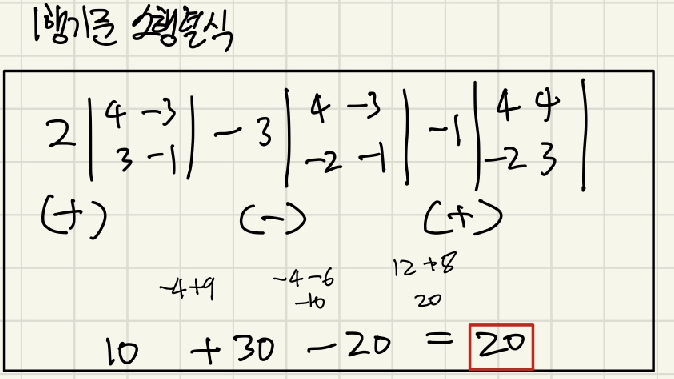 1행기준 소행렬식
2 | 4 -3 | - 3 | 4 -3 | -1 | 4 4 |
| 3 -1 | | -2 -1 | | -2 3 |
(+) (-) (+)
-4+9 -4-6 12+8
-10 20
10 +30 -20 = 20